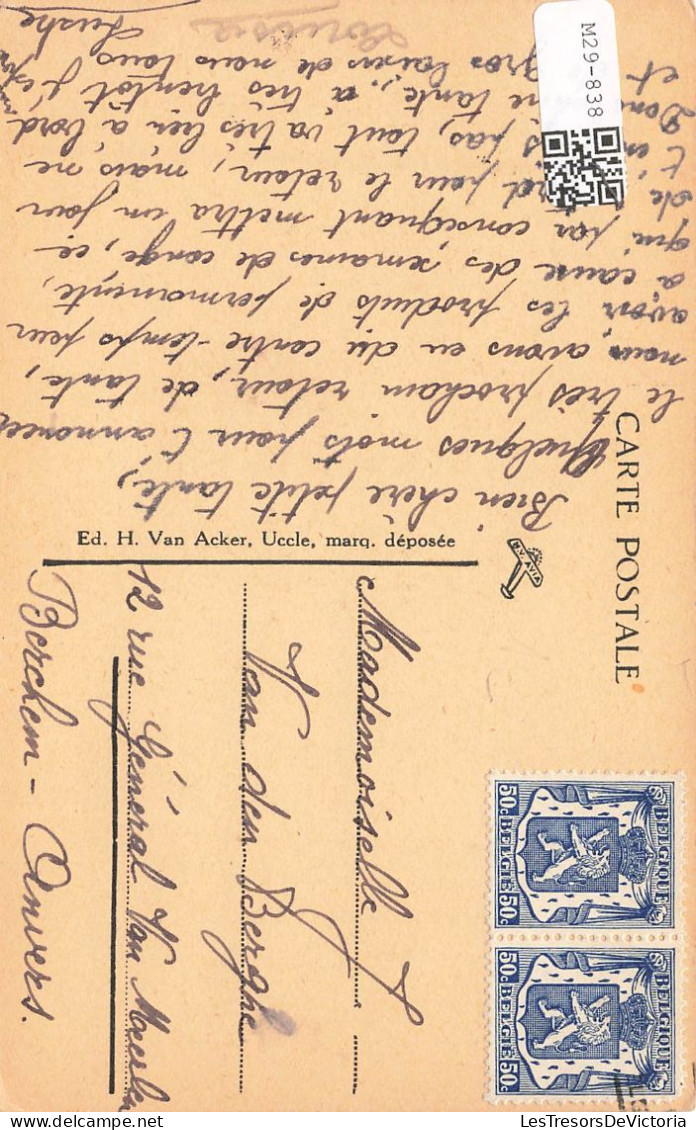 M29-838
CARTE POSTALE
Bien chère petite tante,
Quelques mots pour t'annoncer
le très prochain retour, de tante,
nous avons eu du contre-temps pour
avoir les produits de permanente,
à cause des semaines de congé, ce
qui par conséquant mettra un jour
de pour le retour, mais ne
t'in pas, tout va très bien à bord
Donc tante, à très bientôt j'esp
et gros baisers de nous tous
Louisa
Ed. H. Van Acker, Uccle, marq. déposée
N.V. AVIA
Mademoiselle J.
Van den Berghe
12 rue Général Van Merlen
Berchem - Anvers.
50c BELGIE 50c
BELGIQUE
50c BELGIE 50c
BELGIQUE
LesTresorsDeVictoria